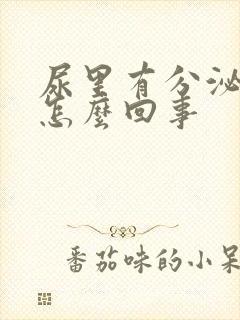 尿里有分泌
怎麼回事
番茄味的小呆